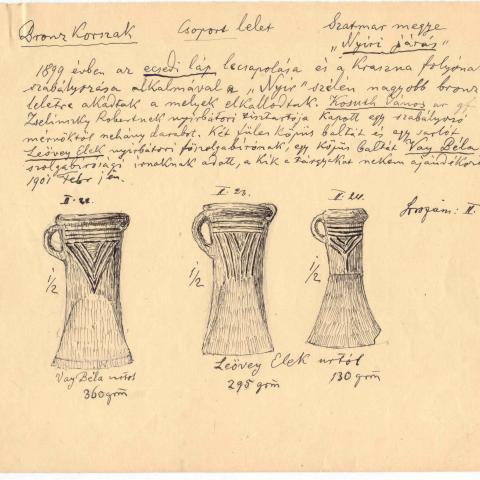 Bronz Korszak Csoport lelet Szatmar megye
„Nyiri járás"
1899 évben az ecsedi láp lecsapolása és a Kraszna folyóna
szabályozása alkalmával a „Nyir" szélén nagyobb bronz
leletre akadtak a melyek elkallódtak. Kosuth János az gf
Zselinszky Robertnek nyirbátori tisztartója kapott egy szabályozó
mérnöktől nehány darabot. Két füles köjüs baltát és egy sarlót
Leövey Elek nyirbátori főszolgabirónak, egy köjüs baltát Vay Béla
szolgabirósági irnoknak adott, a kik a tárgyakat nekem ajándékoz
1901 febr
II. 22. II. 23. II. 24. Sorszám: II.
1/2 1/2 1/2
Vay Béla urtol
360 grm
Leövey Elek urtól
295 grm 130 grm